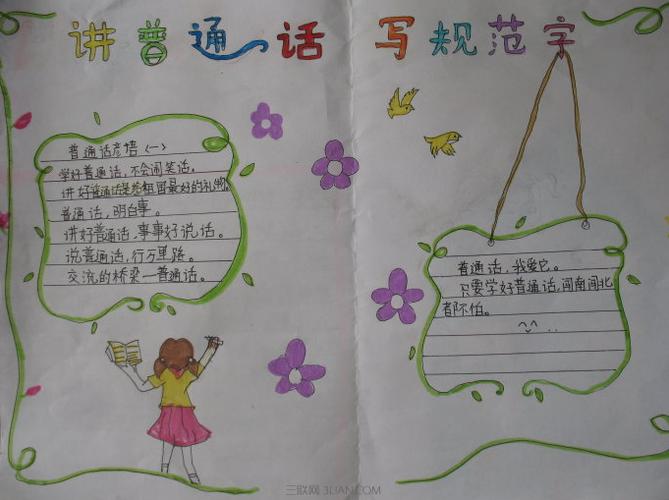 讲普通话 写规范字
普通话彦语（一）
学好普通话，不会闹笑话。
讲好普通话是给祖国最好的礼物。
普通话，明白事。
讲好普通话，事事好说话。
说普通话，行万里路。
交流的桥梁一普通话。
普通话，我爱它。
只要学好普通话，闯南闯北
都不怕。
三联网 3LIAN.COM